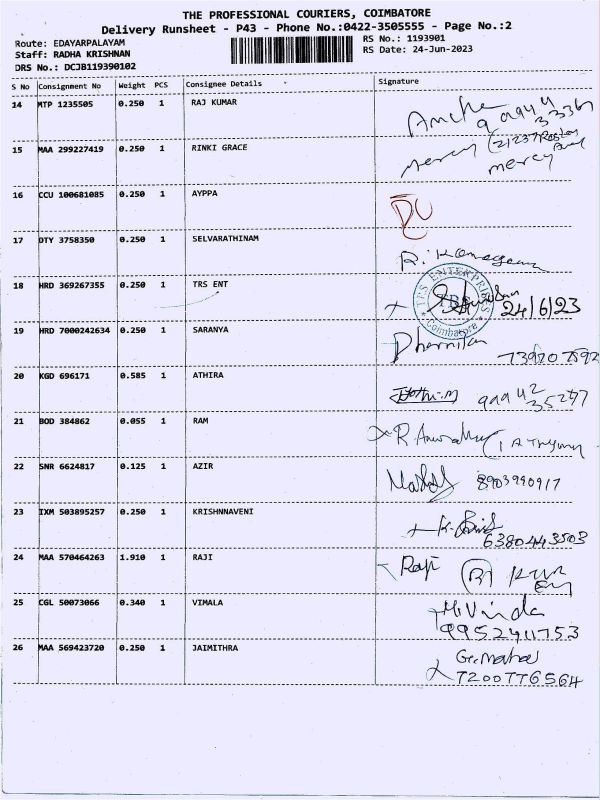 THE PROFESSIONAL COURIERS, COIMBATORE
Delivery Runsheet - P43 - Phone No.:0422-3505555 - Page No.:2
Route: EDAYARPALAYAM
RS No.: 1193901
Staff: RADHA KRISHNAN
RS Date: 24-Jun-2023
DRS No.: DCJB119390102
S No Consignment No Weight PCS Consignee Details Signature
14 MTP 1235505 0.250 1 RAJ KUMAR
15 MAA 299227419 0.250 1 RINKI GRACE mercy
mercy
16 CCU 100681085 0.250 1 AYPPA
17 DTY 3758350 0.250 1 SELVARATHINAM
18 HRD 369267355 0.250 1 TRS ENT
TRS ENTERPRISES
Coimbatore
24/6/23
19 HRD 7000242634 0.250 1 SARANYA
20 KGD 696171 0.585 1 ATHIRA
99942
35247
21 BOD 384862 0.055 1 RAM
22 SNR 6624817 0.125 1 AZIR 8903990917
23 IXM 503895257 0.250 1 KRISHNNAVENI
6380443503
24 MAA 570464263 1.910 1 RAJI Raji
25 CGL 50073066 0.340 1 VIMALA
9952411753
26 MAA 569423720 0.250 1 JAIMITHRA
7200776564